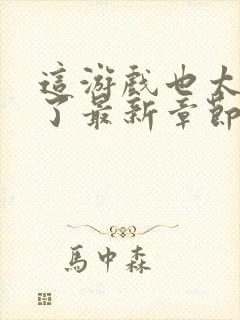 這游戲也太
了最新章節
馬中森